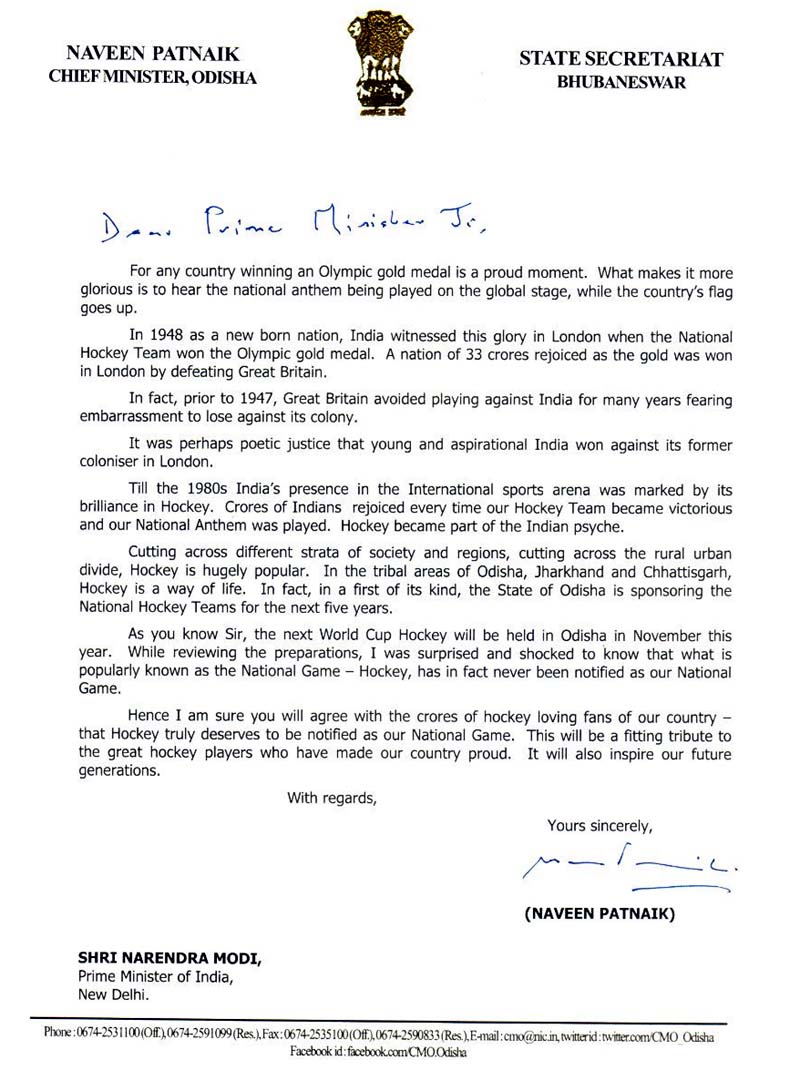 NAVEEN PATNAIK
CHIEF MINISTER, ODISHA
STATE SECRETARIAT
BHUBANESWAR
Dear Prime Minister Ji,
For any country winning an Olympic gold medal is a proud moment. What makes it more
glorious is to hear the national anthem being played on the global stage, while the country's flag
goes up.
In 1948 as a new born nation, India witnessed this glory in London when the National
Hockey Team won the Olympic gold medal. A nation of 33 crores rejoiced as the gold was won
in London by defeating Great Britain.
In fact, prior to 1947, Great Britain avoided playing against India for many years fearing
embarrassment to lose against its colony.
It was perhaps poetic justice that young and aspirational India won against its former
coloniser in London.
Till the 1980s India's presence in the International sports arena was marked by its
brilliance in Hockey. Crores of Indians rejoiced every time our Hockey Team became victorious
and our National Anthem was played. Hockey became part of the Indian psyche.
Cutting across different strata of society and regions, cutting across the rural urban
divide, Hockey is hugely popular. In the tribal areas of Odisha, Jharkhand and Chhattisgarh,
Hockey is a way of life. In fact, in a first of its kind, the State of Odisha is sponsoring the
National Hockey Teams for the next five years.
As you know Sir, the next World Cup Hockey will be held in Odisha in November this
year. While reviewing the preparations, I was surprised and shocked to know that what is
popularly known as the National Game – Hockey, has in fact never been notified as our National
Game.
Hence I am sure you will agree with the crores of hockey loving fans of our country –
that Hockey truly deserves to be notified as our National Game. This will be a fitting tribute to
the great hockey players who have made our country proud. It will also inspire our future
generations.
With regards,
Yours sincerely,
(NAVEEN PATNAIK)
SHRI NARENDRA MODI,
Prime Minister of India,
New Delhi.
Phone : 0674-2531100 (Off.), 0674-2591099 (Res.), Fax : 0674-2535100 (Off.), 0674-2590833 (Res.), E-mail : cmo@nic.in, twitter id : twitter.com/CMO_Odisha
Facebook id : facebook.com/CMO.Odisha